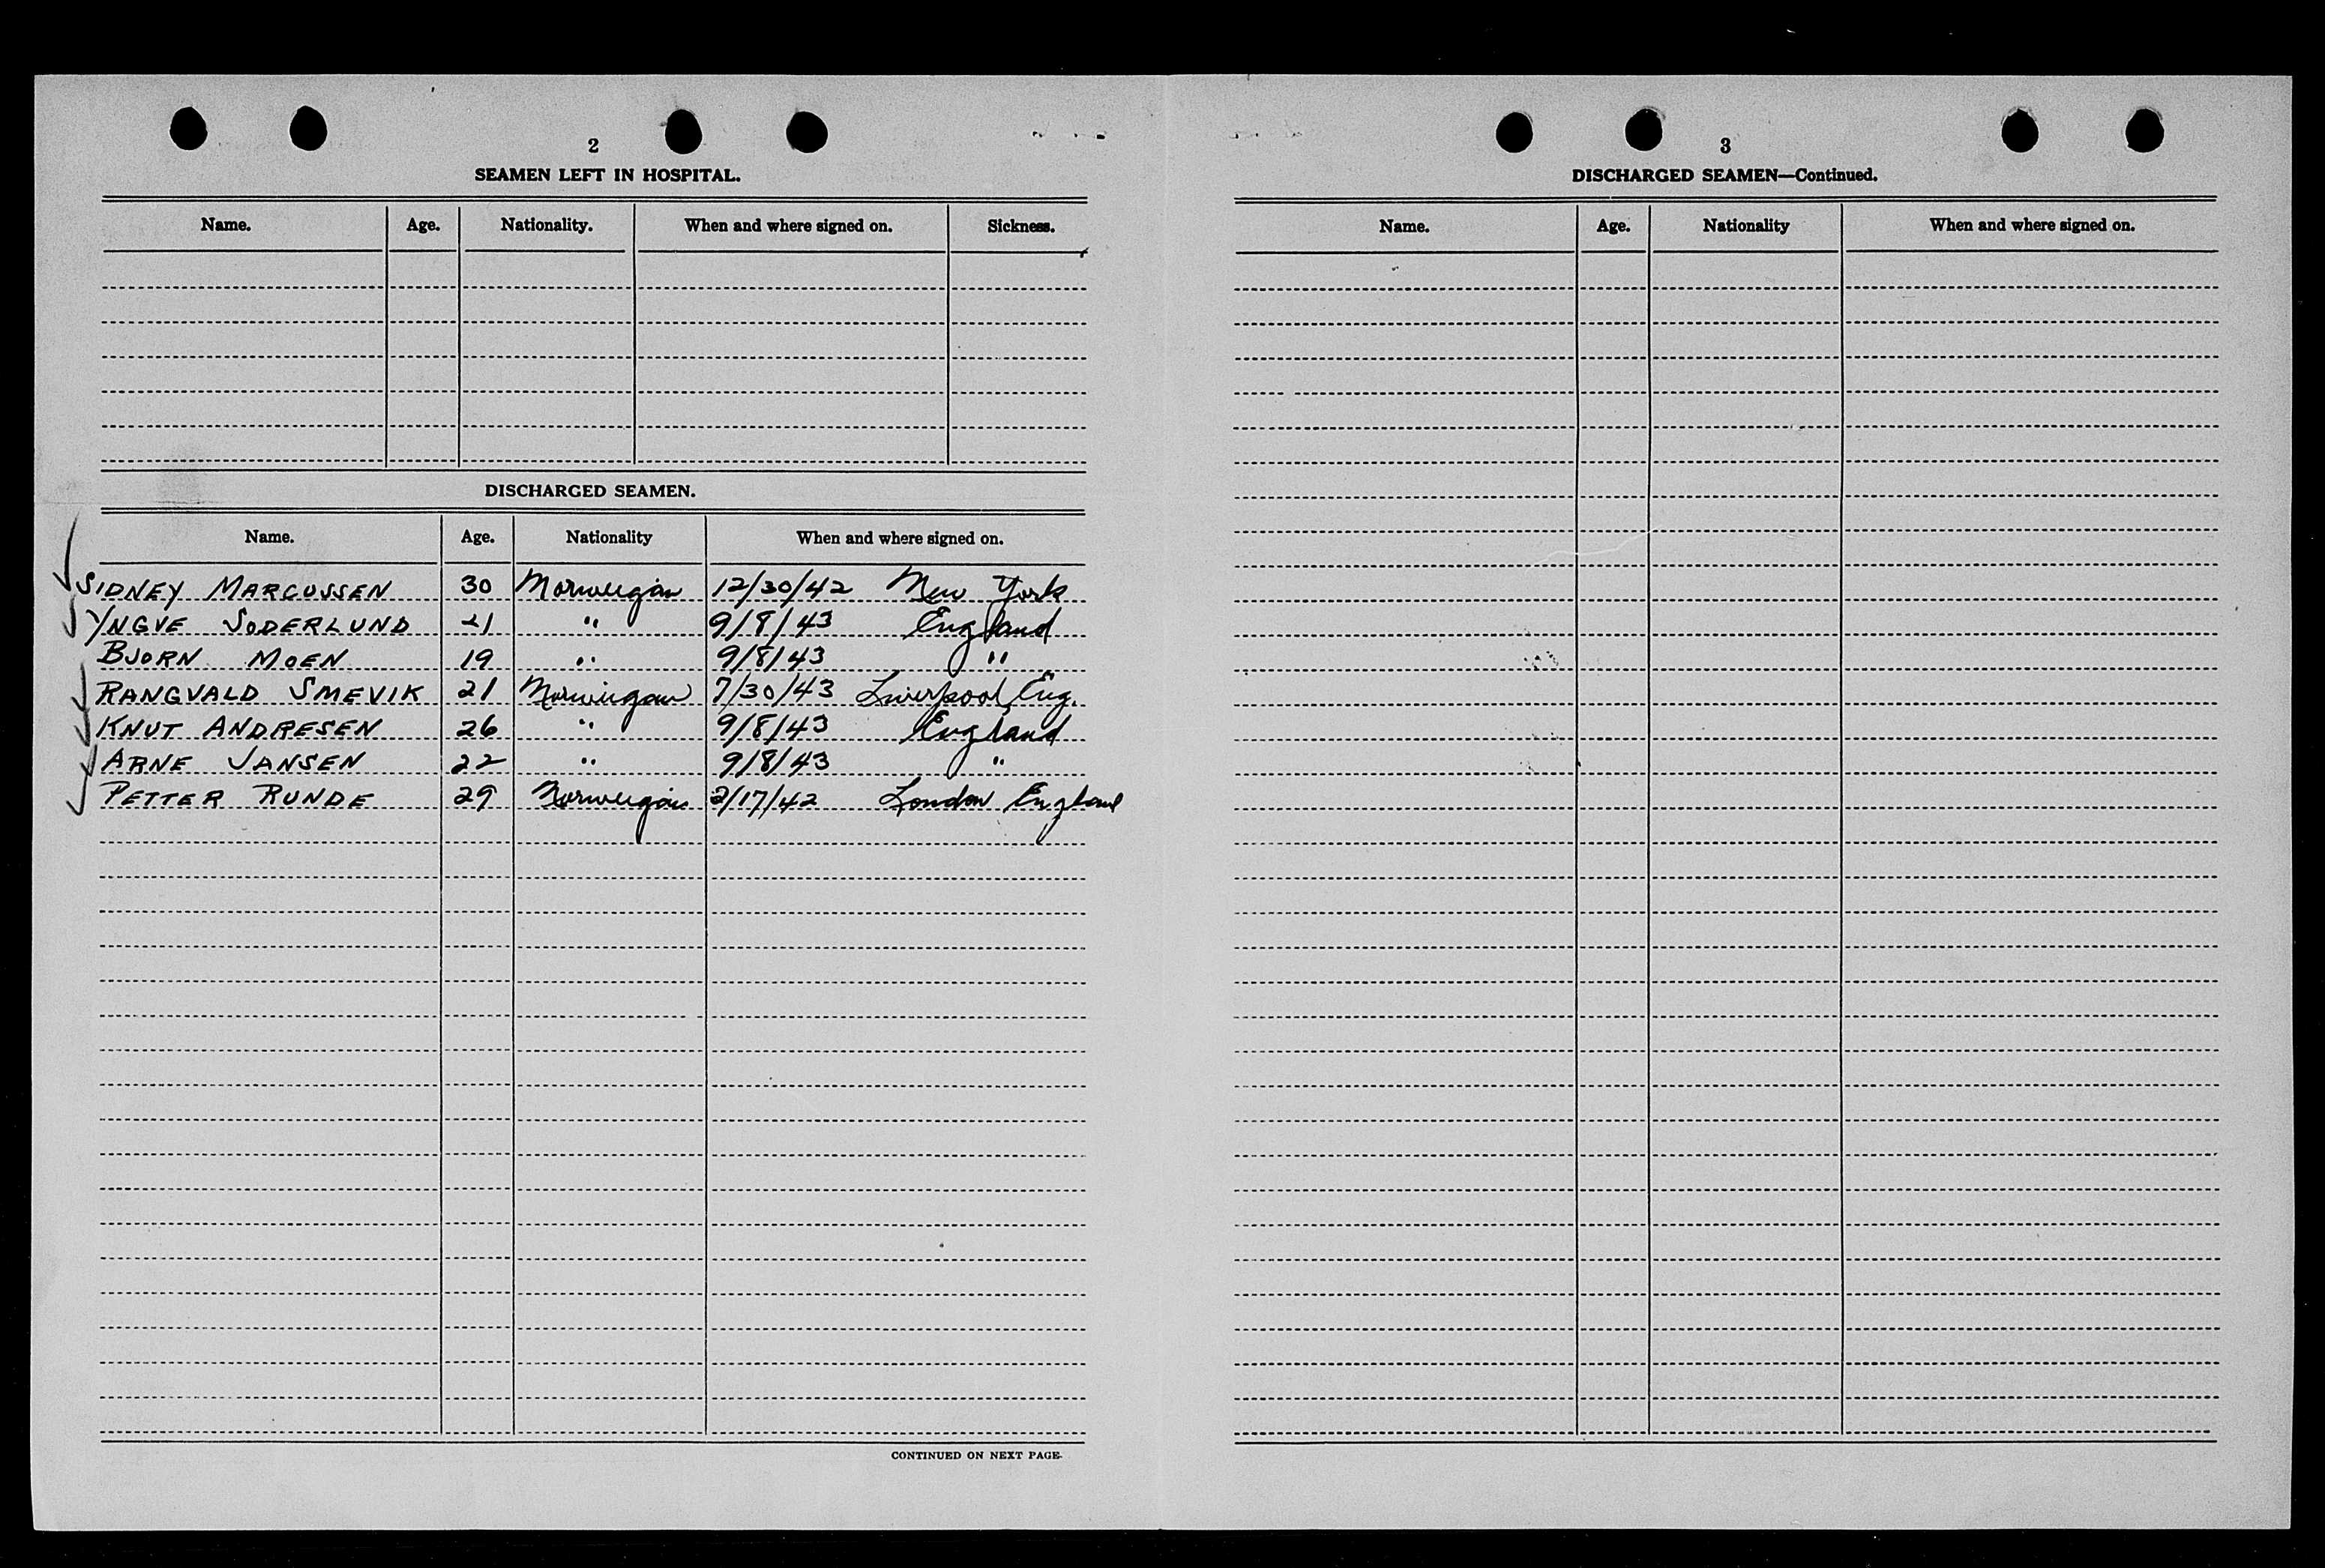 2
SEAMEN LEFT IN HOSPITAL.
Name. Age. Nationality. When and where signed on. Sickness.
DISCHARGED SEAMEN.
Name. Age. Nationality When and where signed on.
SIDNEY MARCUSSEN 30 Norwegian 12/30/42 New York
YNGVE SODERLUND 21 " 9/8/43 England
BJORN MOEN 19 " 9/8/43 "
RANGVALD SMEVIK 21 Norwegan 7/30/43 Liverpool, Eng.
KNUT ANDRESEN 26 " 9/8/43 England
ARNE JANSEN 22 " 9/8/43 "
PETTER RUNDE 29 Norwegian 2/17/42 London England
CONTINUED ON NEXT PAGE-
3
DISCHARGED SEAMEN—Continued.
Name. Age. Nationality When and where signed on.